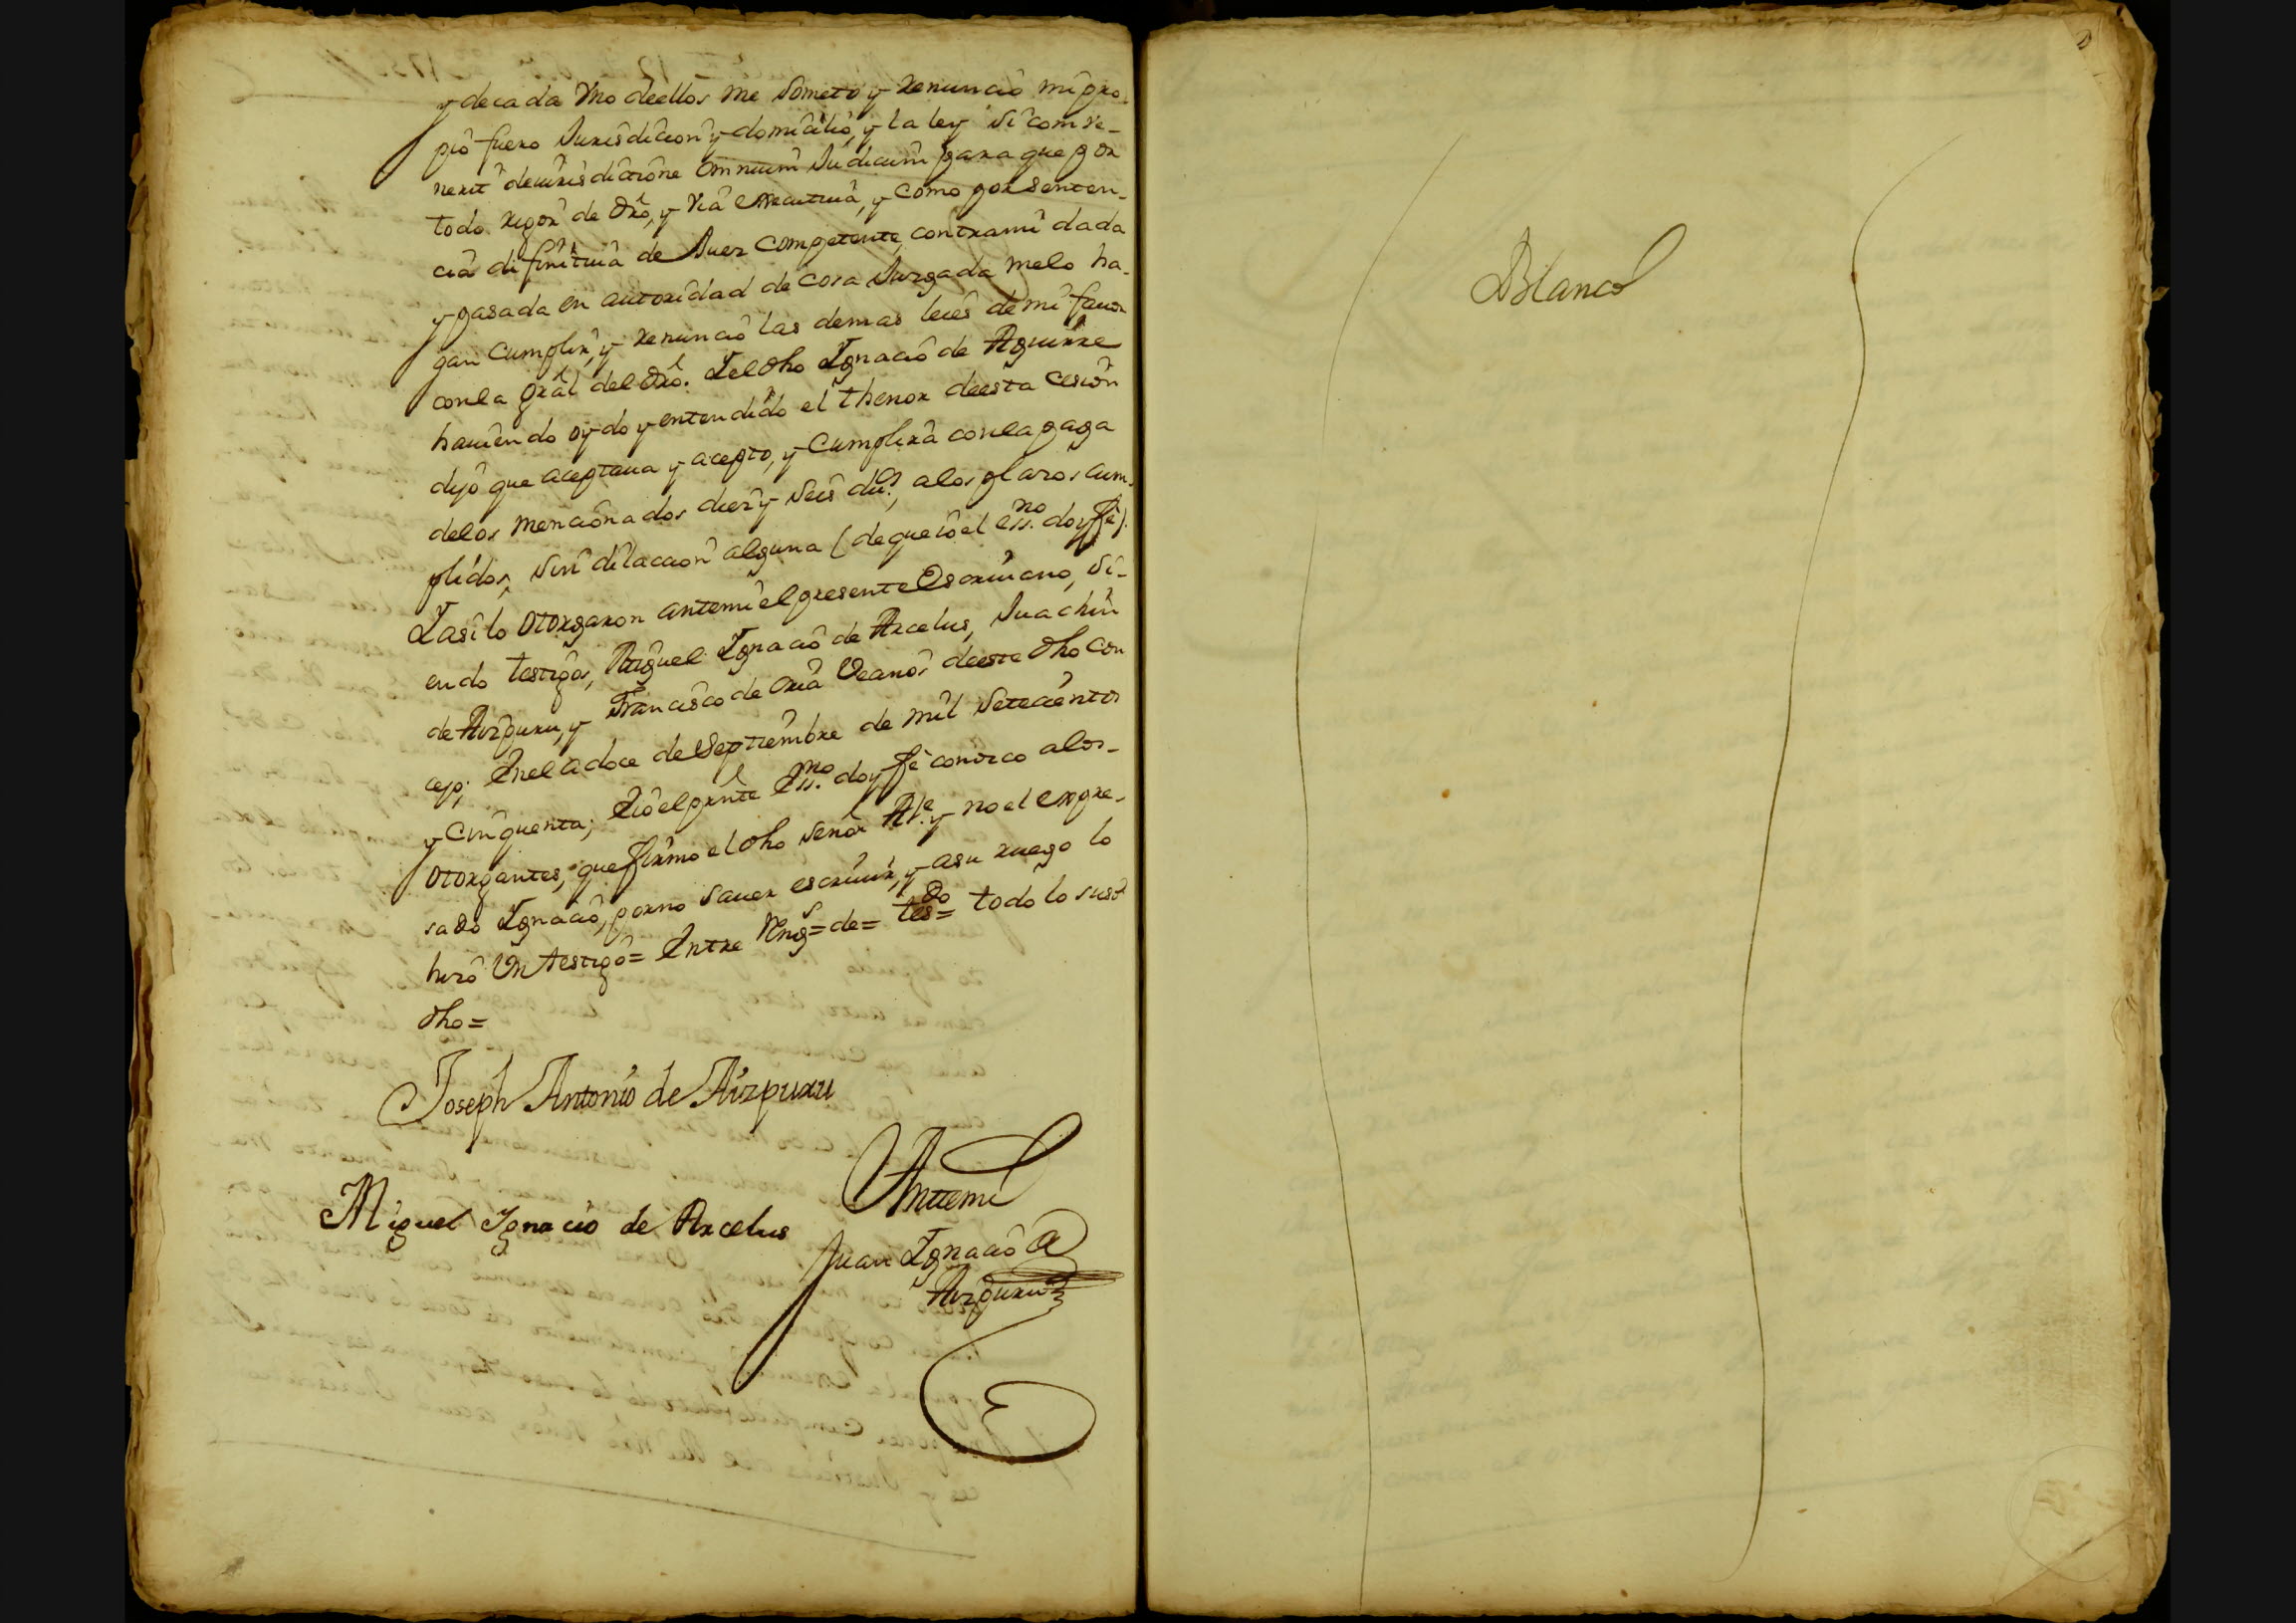 y de cada Vno deellos me someto y renunció mi pro-
pio fuero Jurisdicion y domicilio, y la ley si comve-
nerit de iurisdictione omnium Judicum para que por
todo rigor de dro, y via executiva, y como por senten-
cia difinitiua de Juez competente, contrami dada
y pasada en autoridad de cosa Juzgada melo ha-
gan cumplir, y renunció las demas leies de mi fauor
conla gral del dro. Y el dho Ignacio de Aguirre
hauiendo oydo y entendido el thenor deesta cesion
dijo que aceptaua y acepto, y cumplira conla paga
delos mencionados diez y seis du.s, alos plazos cum-
plidos, sin dilacion alguna (de que io el ess.no doy fe).
Y asi lo otorgaron antemi el presente Escriuano, si-
endo testigos, Miguel Ignacio de Arcelus, Juachin
de Aizpuru, y Francisco de Oria Vecinos deeste dho Con
cejo; Enel a doce de Septiembre de mil setecientos
y cinquenta; E io el prnte Ess.no doy fe conozco alos-
otorgantes, que firmo el dho señor Al.e y no el expre-
sado Ignacio, por no sauer escriuir, y asu ruego lo
hizo Vn testigo= Entre Rng.s= de= tes= do todo lo suso
dho=
Joseph Antonio de Aizpuru
Anttemi
Miguel Ignacio de Arcelus
Juan Ignacio de
Aizpuru
Blanco